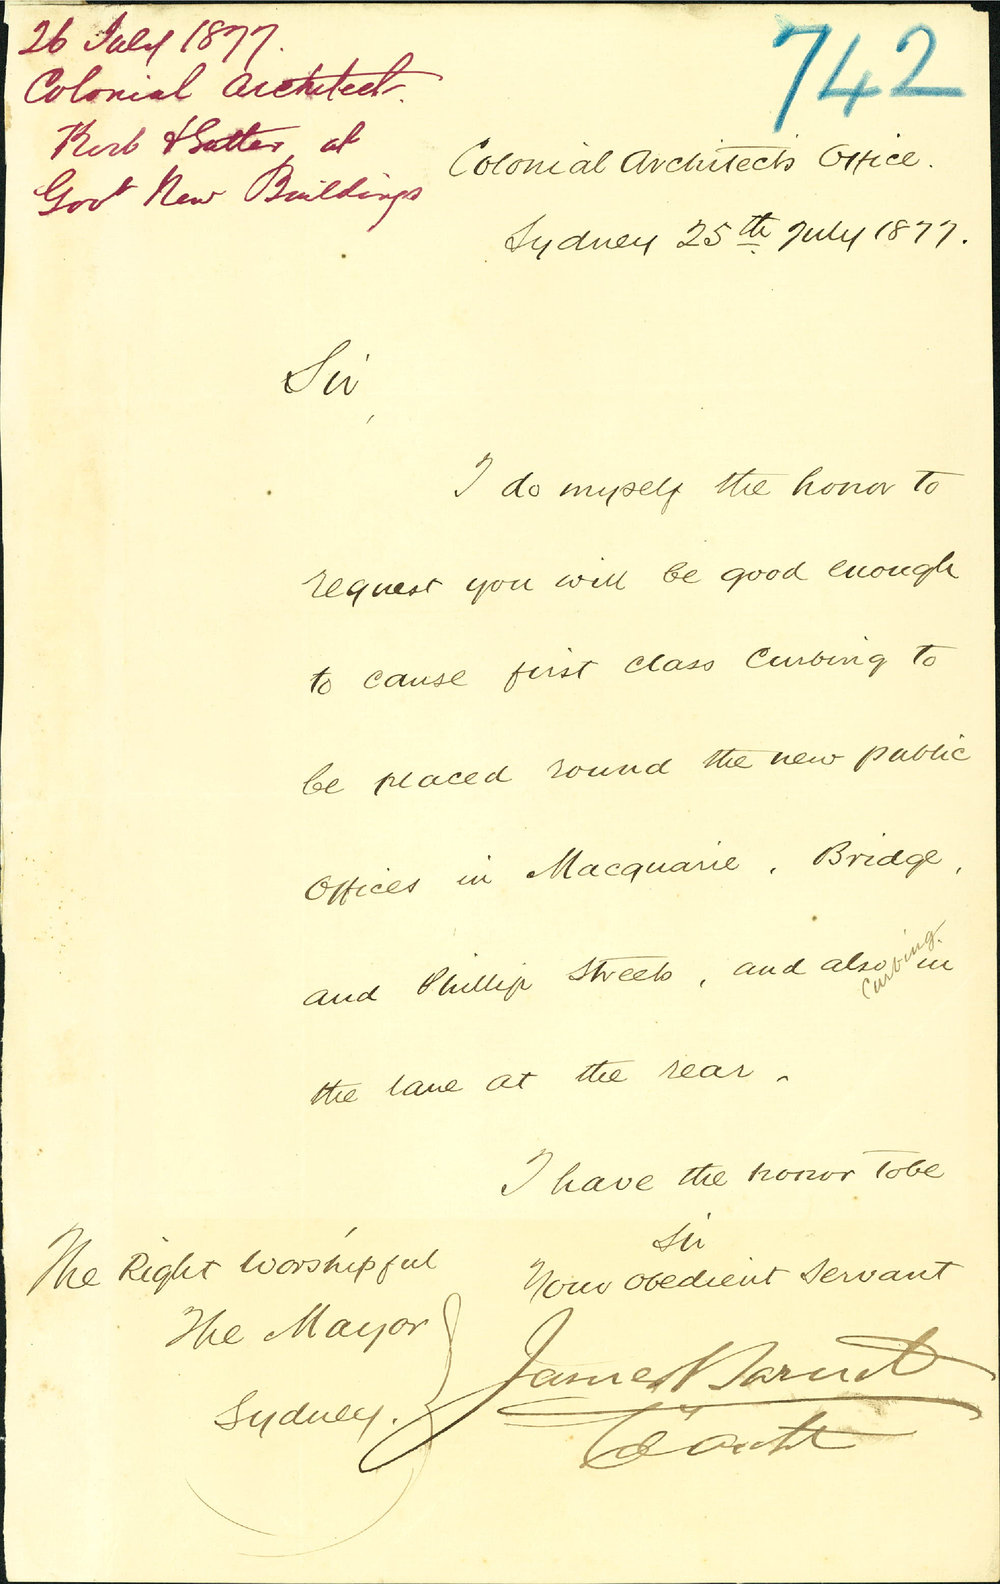 26 July 1877.
Colonial Architect.
Kerb & Gutter at
Govt New Buildings
742
Colonial Architects Office.
Sydney 25th July 1877.
Sir
I do myself the honor to
request you will be good enough
to cause first class Curbing to
be placed round the new public
Offices in Macquarie, Bridge,
and Phillip Streets, and also in
Curbing.
the lane at the rear.
I have the honor to be
Sir
Your obedient Servant
James Barnet
Col Archt
The Right Worshipful
The Mayor
Sydney.